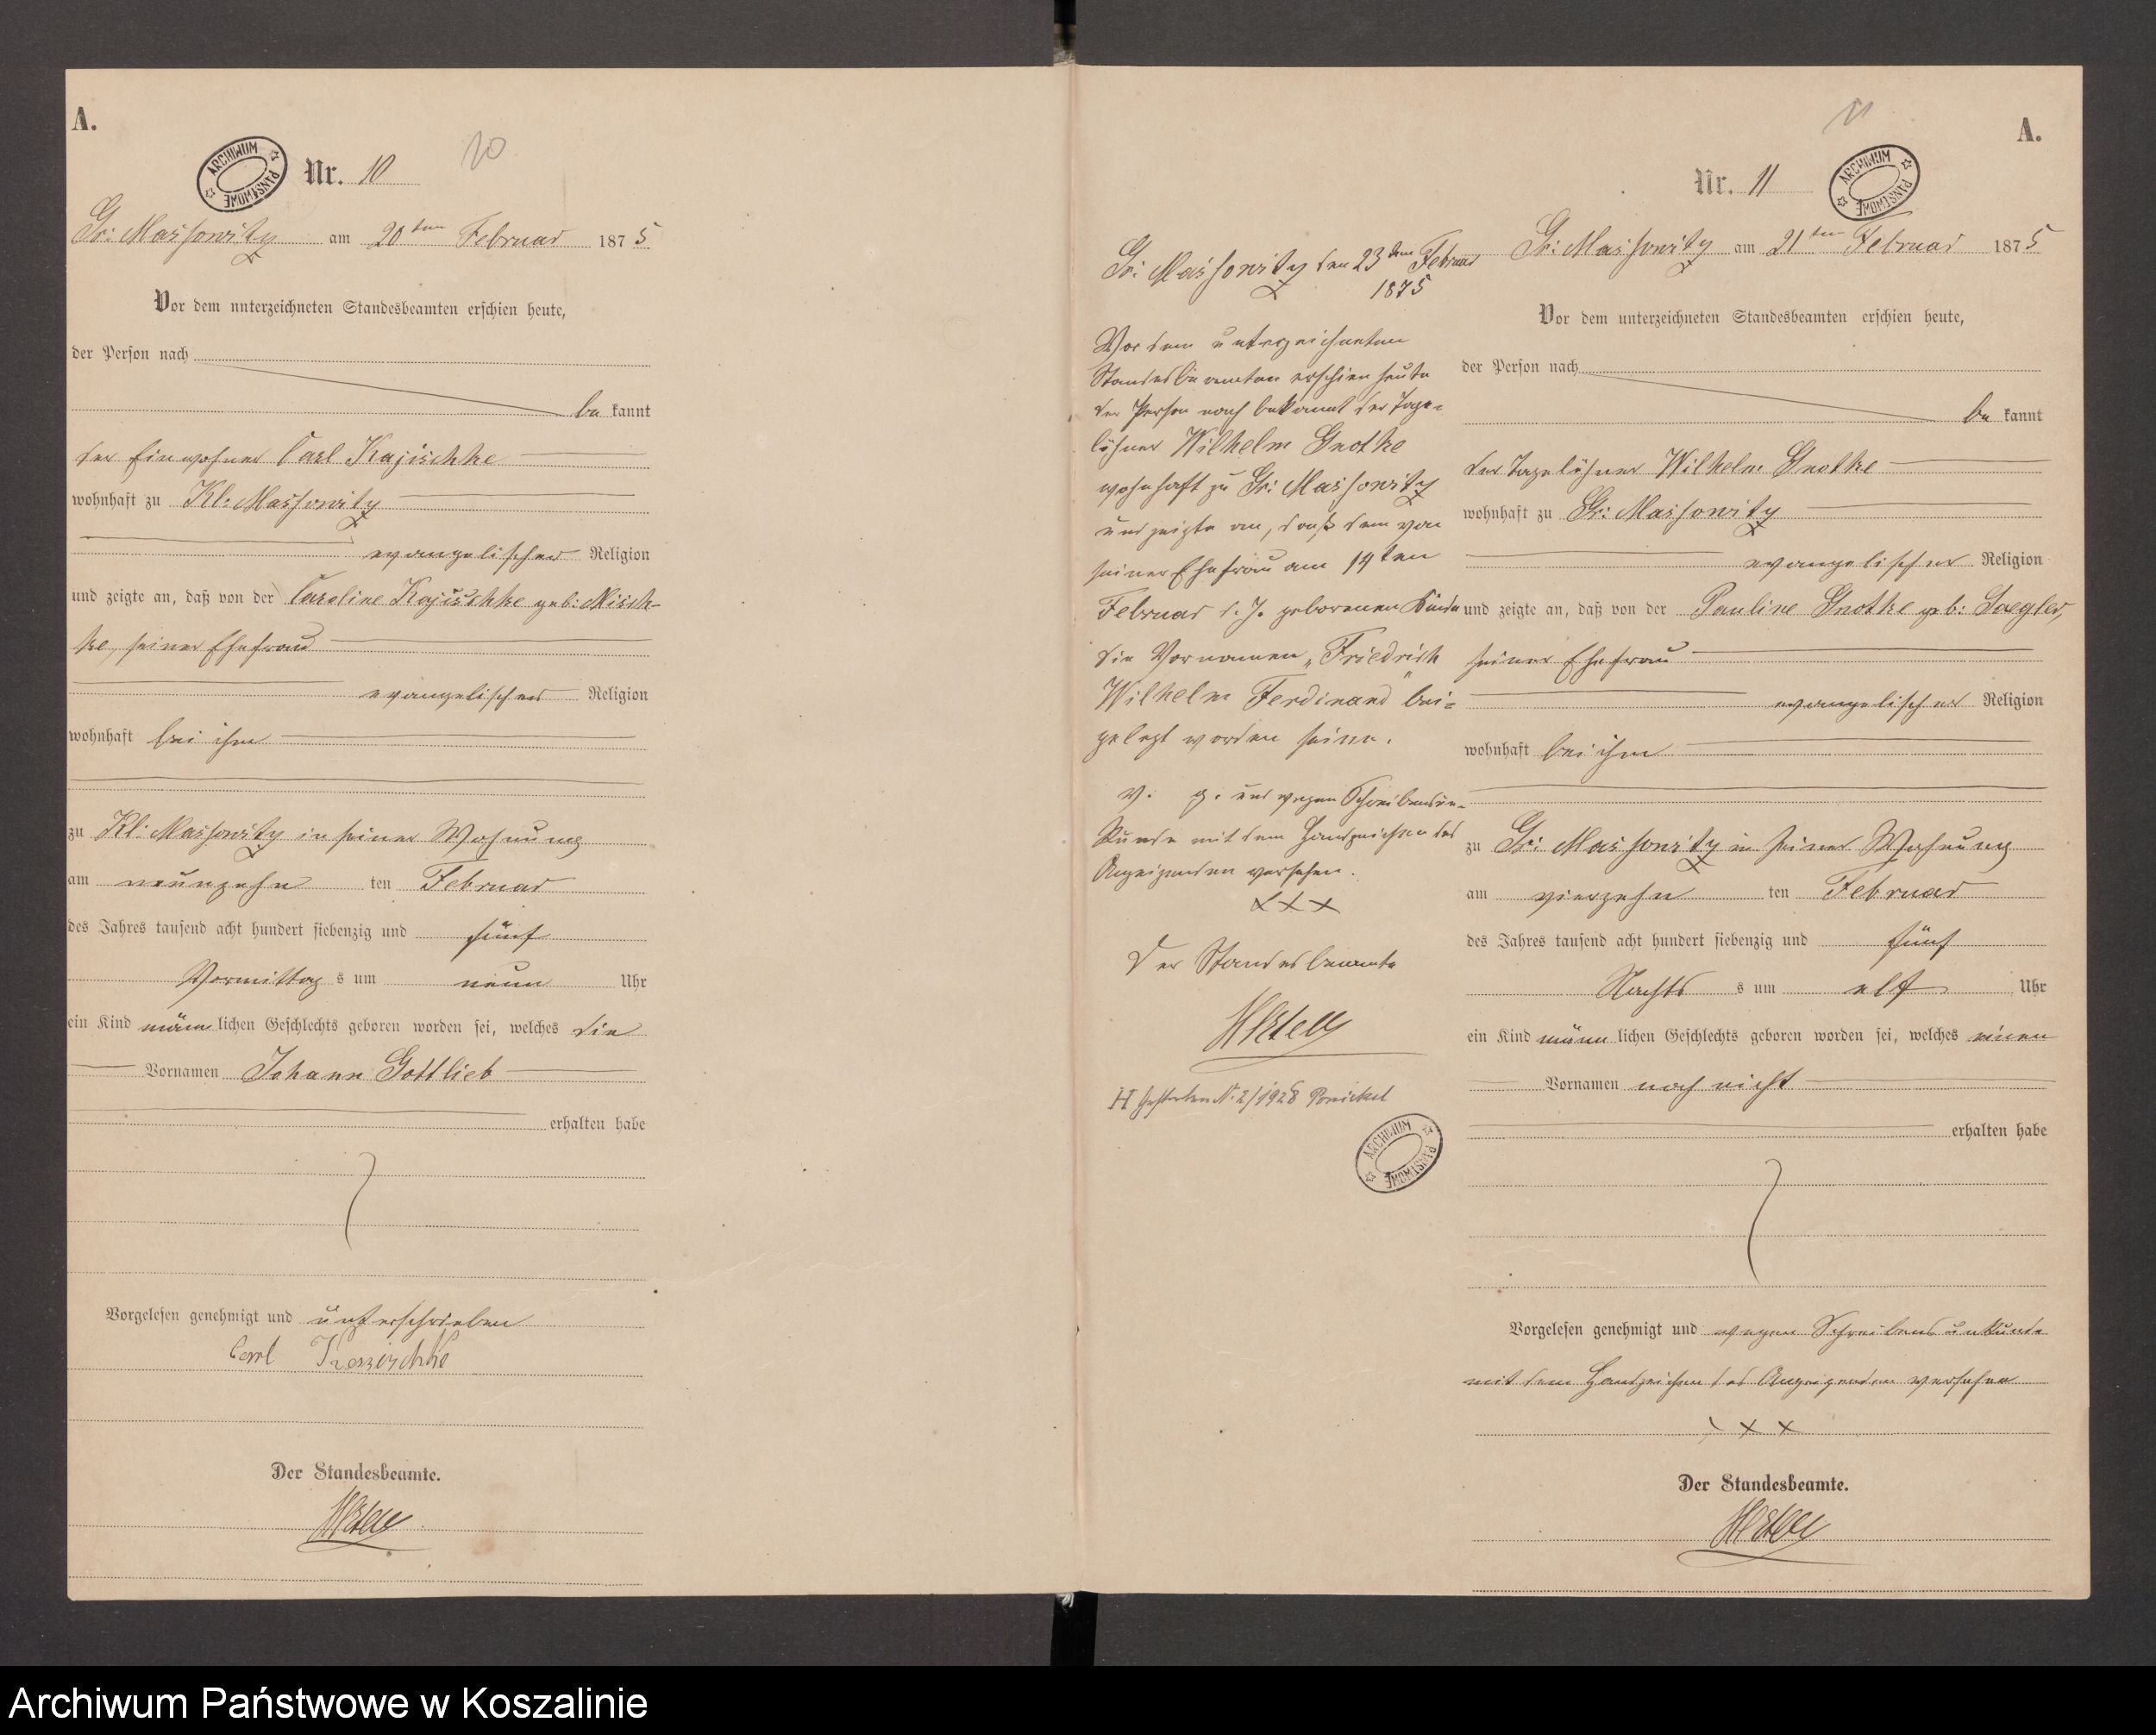 A.
ARCHIWUM PAŃSTWOWE
Nr. 10
10
Gr: Massowitz am 20ten Februar 1875
Vor dem unterzeichneten Standesbeamten erschien heute,
der Person nach
bekannt
der Einwohner Carl Kajischke
wohnhaft zu Kl: Massowitz
evangelischer Religion
und zeigte an, daß von der Caroline Kajischke geb: Misch-
ke, seiner Ehefrau
evangelischer Religion
wohnhaft bei ihm
zu Kl: Massowitz in seiner Wohnung
am neunzehn ten Februar
des Jahres tausend acht hundert siebenzig und fünf
Vormittag s um neun Uhr
ein Kind männlichen Geschlechts geboren worden sei, welches die
Vornamen Johann Gottlieb
erhalten habe
Vorgelesen genehmigt und unterschrieben
Carl
Der Standesbeamte.
Gr: Massowitz den 23ten Februar
1875
Vor dem unterzeichneten
Standesbeamten erschien heute
der Person nach bekannt der Tage=
löhner Wilhelm Gnotke
wohnhaft zu Gr: Massowitz
und zeigte an, daß dem von
seiner Ehefrau am 14ten
Februar d. J. geborenen Kinde
die Vornamen „Friedrich
Wilhelm Ferdinand" bei=
gelegt worden seien.
v. g. und wegen Schreibensun-
kunde mit dem Handzeichen des
Anzeigenden versehen.
XXX
Der Standesbeamte
H Gestorben Nr. 2/1928
ARCHIWUM PAŃSTWOWE
11
A.
Nr. 11
ARCHIWUM PAŃSTWOWE
Gr: Massowitz am 21ten Februar 1875
Vor dem unterzeichneten Standesbeamten erschien heute,
der Person nach
bekannt
der Tagelöhner Wilhelm Gnotke
wohnhaft zu Gr: Massowitz
evangelischer Religion
und zeigte an, daß von der Pauline Gnotke geb: Saegler,
seiner Ehefrau
evangelischer Religion
wohnhaft bei ihm
zu Gr: Massowitz in seiner Wohnung
am vierzehn ten Februar
des Jahres tausend acht hundert siebenzig und fünf
Nachts s um elf Uhr
ein Kind männlichen Geschlechts geboren worden sei, welches einen
Vornamen noch nicht
erhalten habe
Vorgelesen genehmigt und wegen Schreibensunkunde
mit dem Handzeichen des Anzeigenden versehen
XXX
Der Standesbeamte.
Archiwum Państwowe w Koszalinie